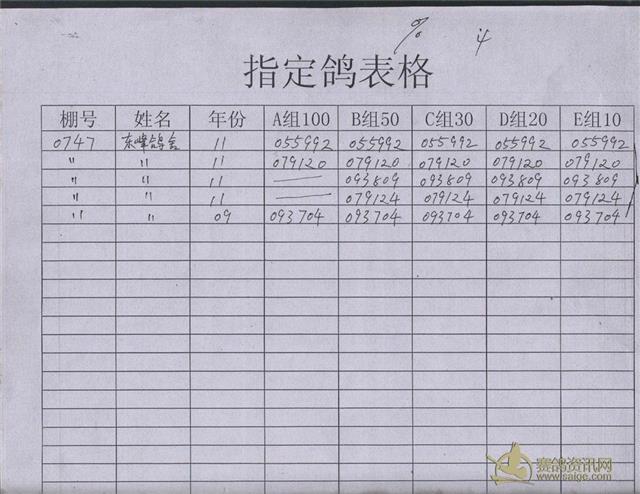 % 4
指定鸽表格
棚号 姓名 年份 A组100 B组50 C组30 D组20 E组10
0747 东峰鸽舍 11 055992 055992 055992 055992 055992
〃 〃 11 079120 079120 079120 079120 079120
〃 〃 11 — 093809 093809 093809 093809
〃 〃 11 — 079124 079124 079124 079124
〃 〃 09 093704 093704 093704 093704 093704
赛鸽资讯网
www.saige.com